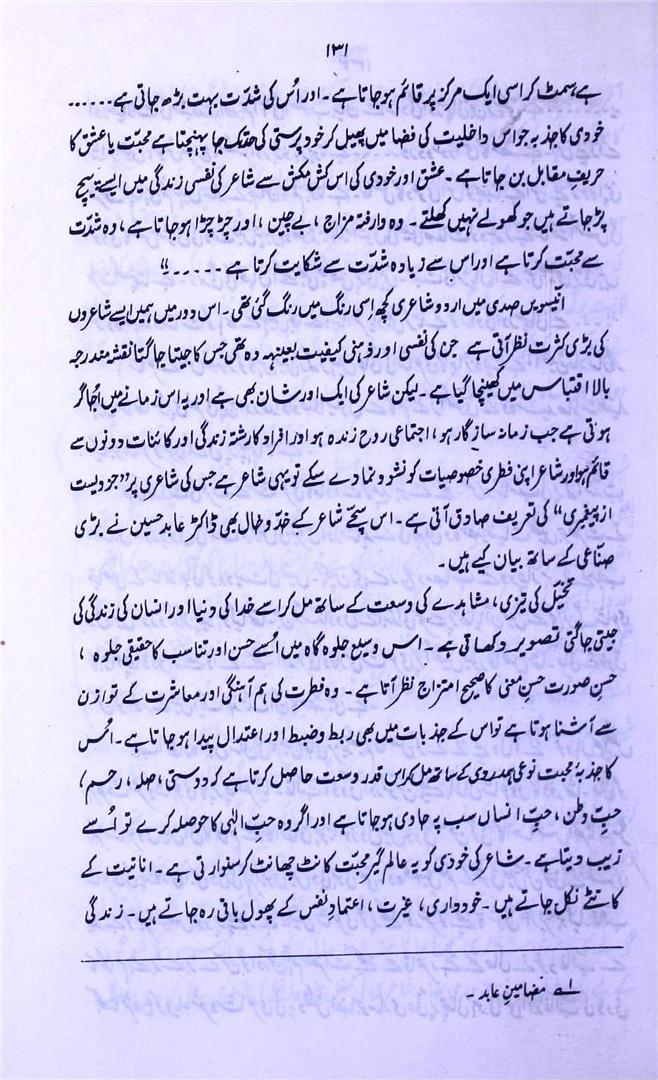 ۱۳۱
ہے سمٹ کر اسی ایک مرکز پر قائم ہو جاتا ہے۔ اور اُس کی شدّت بہت بڑھ جاتی ہے۔۔۔۔۔۔
خودی کا جذبہ جو اس داخلیت کی فضا میں پھیل کر خود پرستی کی حد تک جا پہنچتا ہے محبّت یا عشق کا
حریفِ مقابل بن جاتا ہے۔ عشق اور خودی کی اس کش مکش سے شاعر کی نفسی زندگی میں ایسے پیچ
پڑ جاتے ہیں جو کھولے نہیں کھلتے۔ وہ وارفتہ مزاج، بے چین، اور چڑچڑا ہو جاتا ہے، وہ شدّت
سے محبّت کرتا ہے اور اس سے زیادہ شدّت سے شکایت کرتا ہے۔۔۔۔۔۔"
انیسویں صدی میں اردو شاعری کچھ اِسی رنگ میں رنگ گئی تھی۔ اس دور میں ہمیں ایسے شاعروں
کی بڑی کثرت نظر آتی ہے جن کی نفسی اور ذہنی کیفیت بعینہٖ وہ تھی جس کا جیتا جاگتا نقشہ مندرجہ
بالا اقتباس میں کھینچا گیا ہے۔ لیکن شاعر کی ایک اور شان بھی ہے اور یہ اس زمانے میں اُجاگر
ہوتی ہے جب زمانہ سازگار ہو، اجتماعی روح زندہ ہو اور افراد کا رشتہ زندگی اور کائنات دونوں سے
قائم ہو اور شاعر اپنی فطری خصوصیات کو نشو و نما دے سکے تو یہی شاعر ہے جس کی شاعری پر "جزویست
از پیغمبری" کی تعریف صادق آتی ہے۔ اس سچّے شاعر کے خد و خال بھی ڈاکٹر عابد حسین نے بڑی
صنّاعی کے ساتھ بیان کیے ہیں۔
تخیّل کی تیزی، مشاہدے کی وسعت کے ساتھ مل کر اسے خدا کی دنیا اور انسان کی زندگی کی
جیتی جاگتی تصویر دکھاتی ہے۔ اس وسیع جلوہ گاہ میں اُسے حسن اور تناسب کا حقیقی جلوہ،
حسنِ صورت حسنِ معنی کا صحیح امتزاج نظر آتا ہے۔ وہ فطرت کی ہم آہنگی اور معاشرت کے توازن
سے آشنا ہوتا ہے تو اس کے جذبات میں بھی ربط و ضبط اور اعتدال پیدا ہو جاتا ہے۔ اُس
کا جذبۂ محبت نوعی ہمدردی کے ساتھ مل کر اس قدر وسعت حاصل کرتا ہے کہ دوستی، صلہ، رحم،
حبِّ وطن، حبِّ انساں سب پہ حاوی ہو جاتا ہے اور اگر وہ حبِّ الٰہی کا حوصلہ کرے تو اُسے
زیب دیتا ہے۔ شاعر کی خودی کو یہ عالم گیر محبّت کانٹ چھانٹ کر سنوارتی ہے۔ انانیت کے
کانٹے نکل جاتے ہیں۔ خودداری، غیرت، اعتمادِ نفس کے پھول باقی رہ جاتے ہیں۔ زندگی
۱ے مضامینِ عابد۔